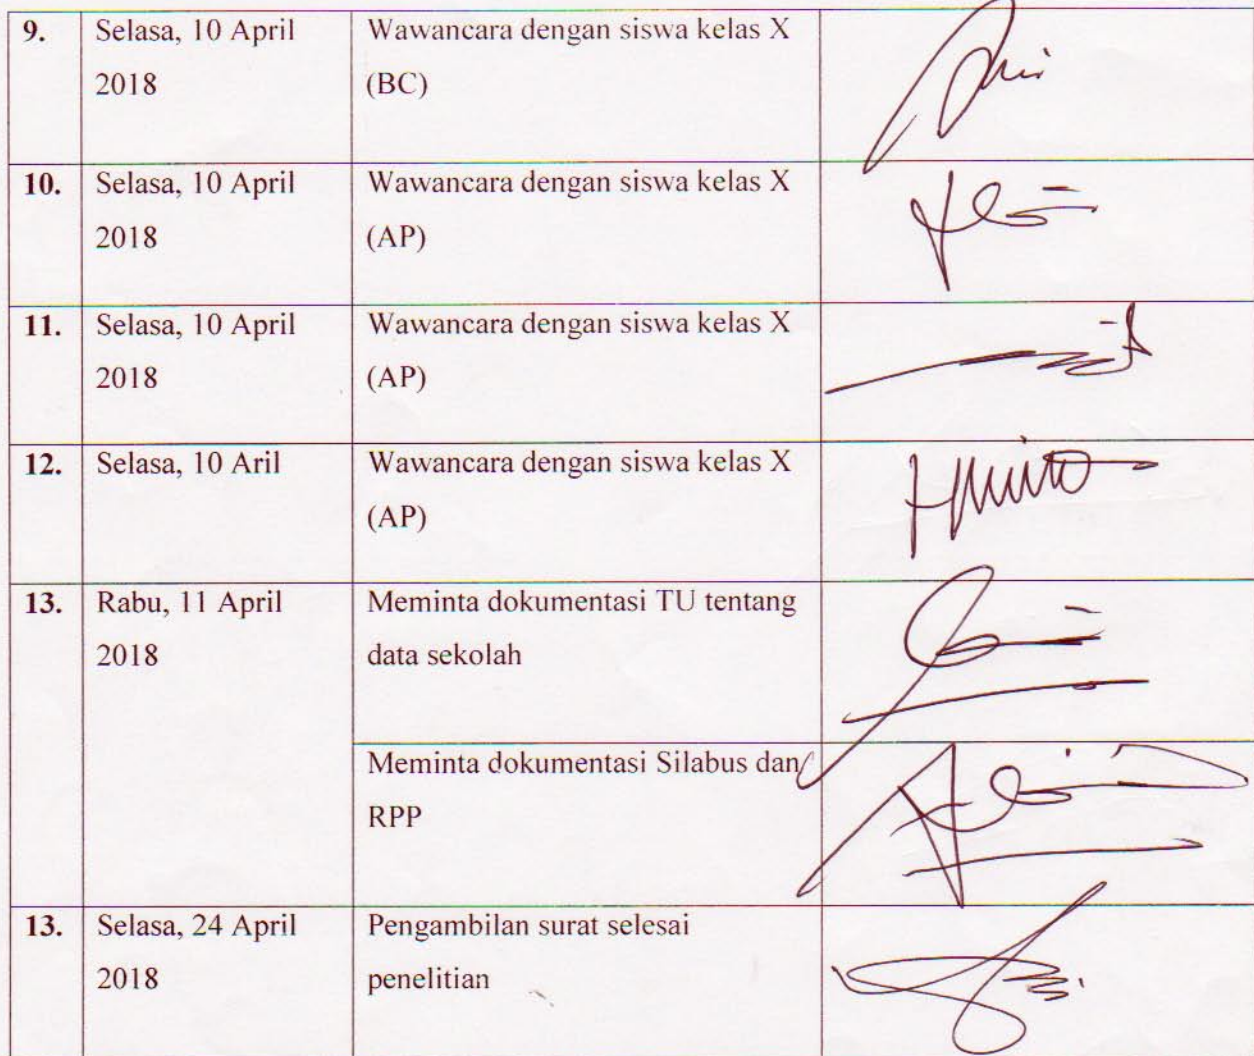 9. Selasa, 10 April Wawancara dengan siswa kelas X
2018 (BC)
10. Selasa, 10 April Wawancara dengan siswa kelas X
2018 (AP)
11. Selasa, 10 April Wawancara dengan siswa kelas X
2018 (AP)
12. Selasa, 10 Aril Wawancara dengan siswa kelas X
(AP)
13. Rabu, 11 April Meminta dokumentasi TU tentang
2018 data sekolah
Meminta dokumentasi Silabus dan
RPP
13. Selasa, 24 April Pengambilan surat selesai
2018 penelitian